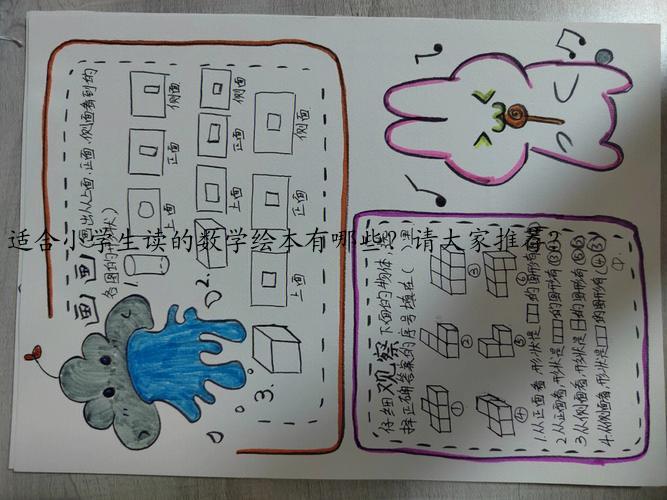 适合小学生读的数学绘本有哪些?请大家推荐?
画一画(画出从上面、正面、侧面看到的
各图的形状)
1.
上面
正面
侧面
2.
上面
正面
侧面
3.
上面
正面
侧面
仔细观察下面的物体,选
择正确答案的序号填在( )里
①
②
③
④
⑤
⑥
1.从正面看,形状是的图形有
2.从正面看,形状是的图形有
3.从侧面看,形状是的图形有
4.从侧面看,形状是的图形有